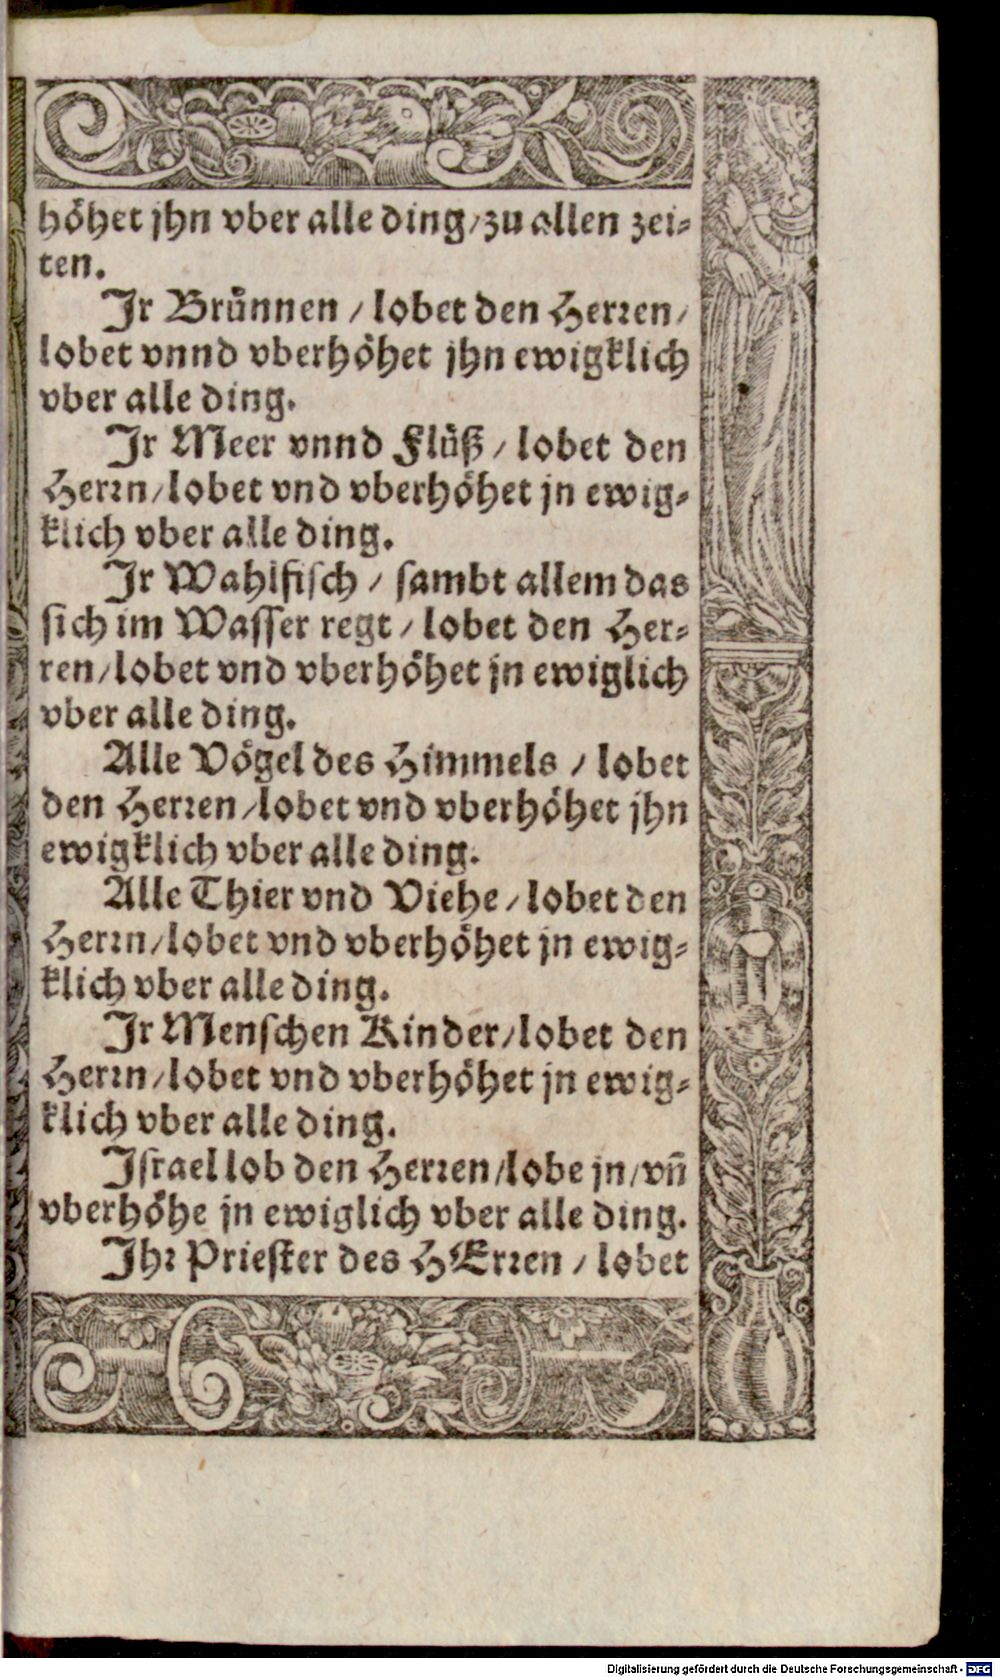 höhet jhn vber alle ding/zu allen zei⸗
ten.
Jr Brünnen / lobet den Herren/
lobet vnnd vberhöhet jhn ewigklich
vber alle ding.
Jr Meer vnnd Flüß / lobet den
Herrn/lobet vnd vberhöhet jn ewig⸗
klich vber alle ding.
Jr Wahlfisch / sambt allem das
sich im Wasser regt / lobet den Her⸗
ren/lobet vnd vberhöhet jn ewiglich
vber alle ding.
Alle Vögel des Himmels / lobet
den Herren/lobet vnd vberhöhet jhn
ewigklich vber alle ding.
Alle Thier vnd Viehe/lobet den
Herrn/lobet vnd vberhöhet jn ewig⸗
klich vber alle ding.
Jr Menschen Kinder/lobet den
Herrn/lobet vnd vberhöhet jn ewig⸗
klich vber alle ding.
Israel lob den Herren/lobe jn/vñ
vberhöhe jn ewiglich vber alle ding.
Jhr Priester des HErren / lobet
Digitalisierung gefördert durch die Deutsche Forschungsgemeinschaft - DFG